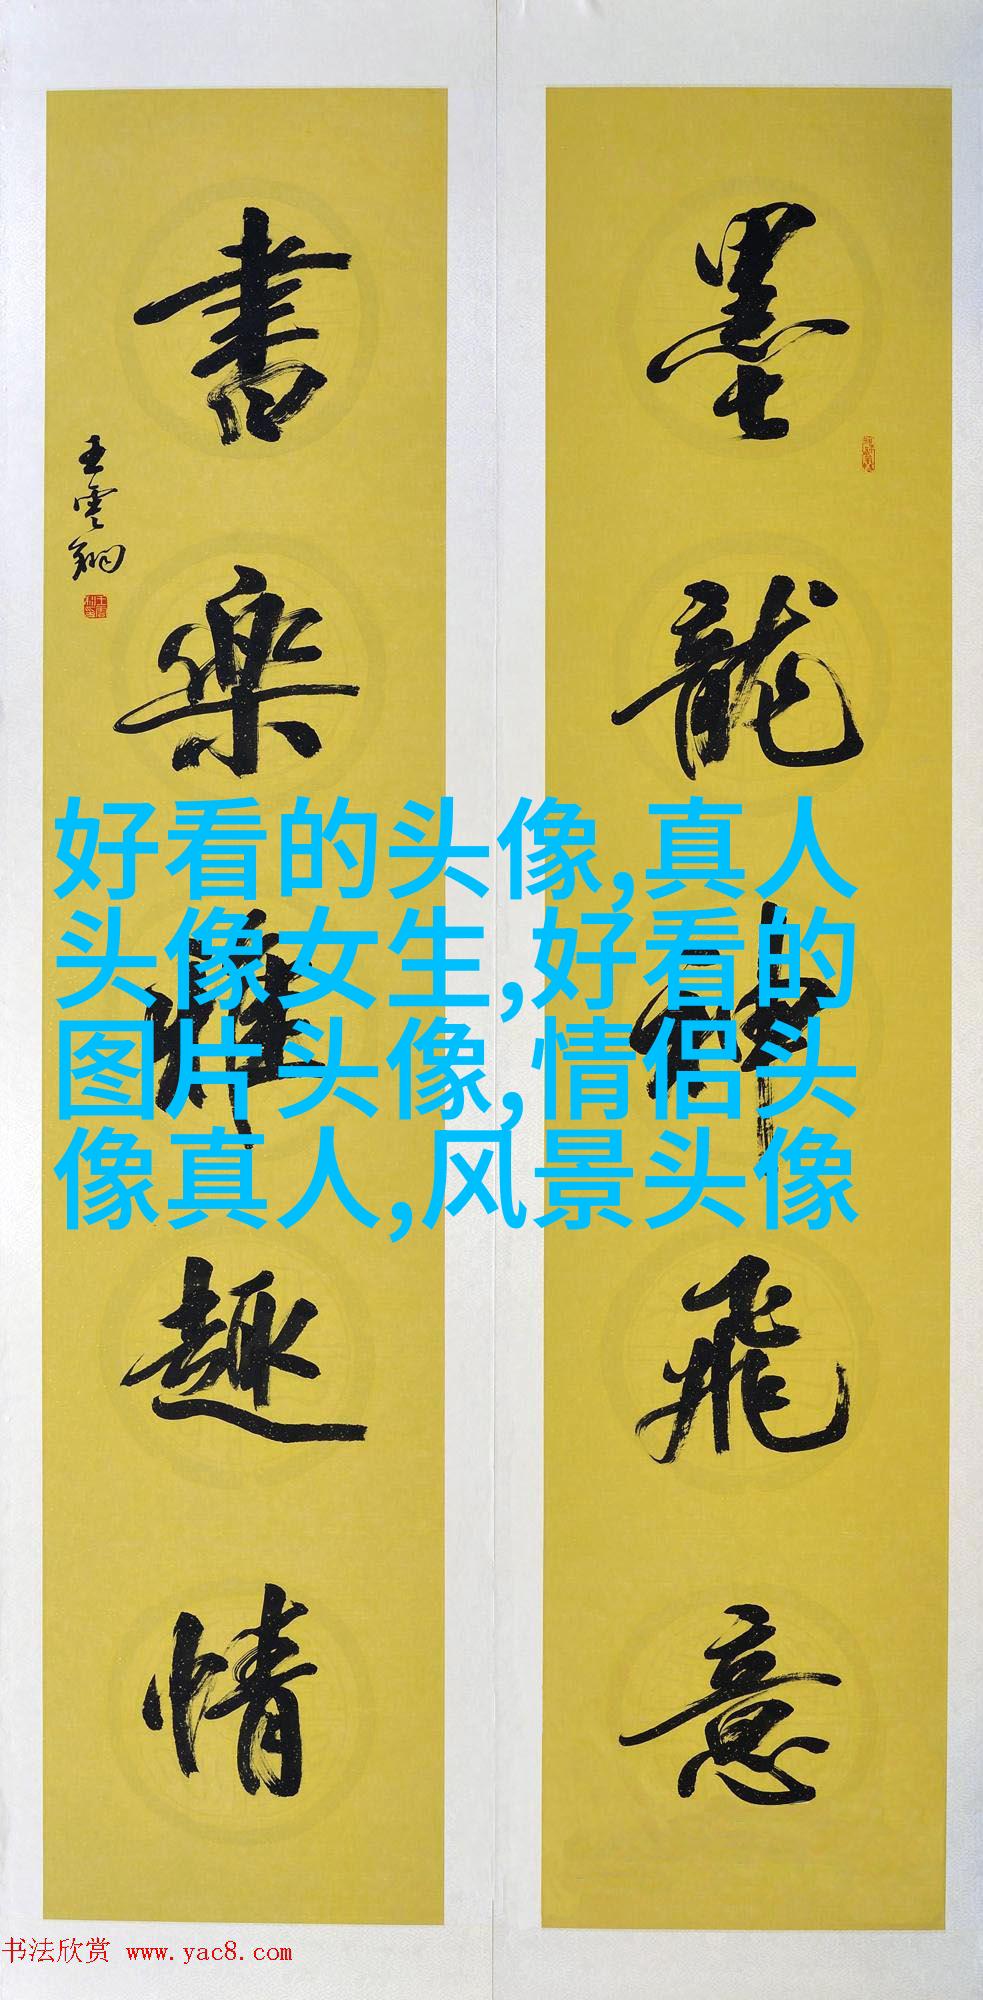 墨龍神飛意
書樂雅趣情
王雲翔
好看的头像,真人
头像女生,好看的
图片头像,情侣头
像真人,风景头像
书法欣赏 www.yac8.com